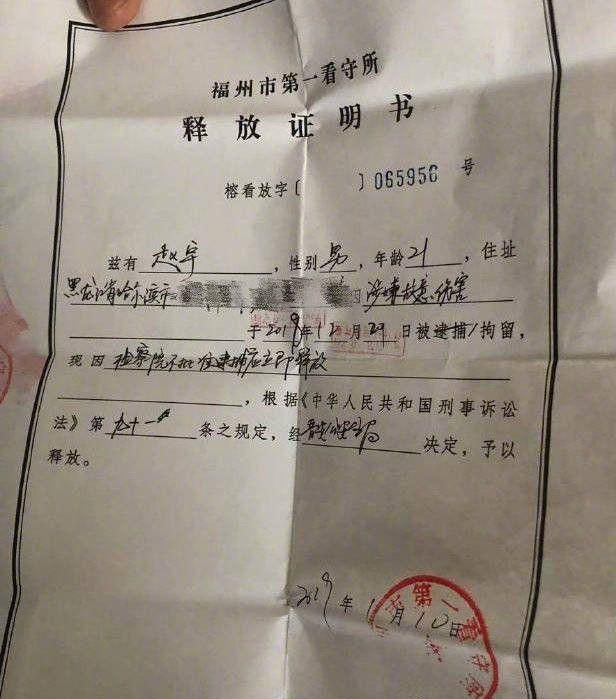 福州市第一看守所
释放证明书
榕看放字〔 〕065956 号
兹有 赵宇 ,性别 男 ,年龄 21 ,住址
黑龙江省哈尔滨市 涉嫌故意伤害
于2019年12月29日被逮捕/拘留,
现因 检察院不批准逮捕应立即释放
,根据《中华人民共和国刑事诉讼
法》第 九十一 条之规定,经 决定,予以
释放。
2019年1月10日
第一看守所